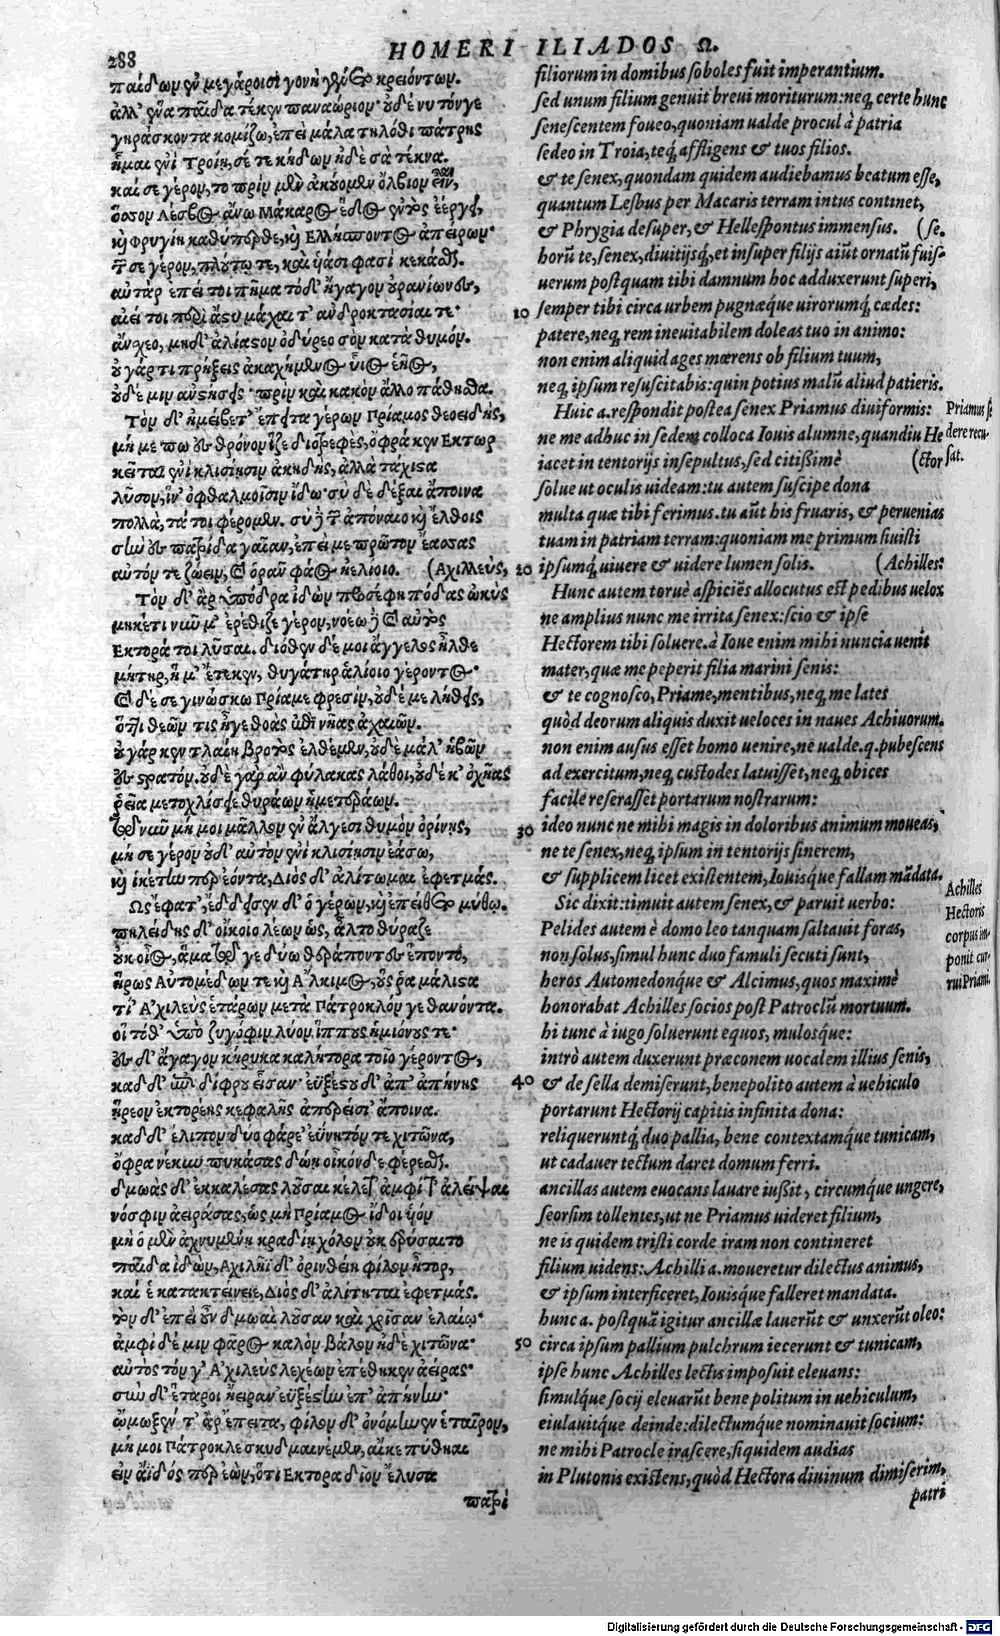 288
HOMERI ILIADOS Ω.
παίδων ἐν μεγάροισι γονὴ γένετο κρειόντων.
ἀλλ' ἕνα παῖδα τέκεν παναώριον· οὐδέ νυ τόνγε
γηράσκοντα κομίζω, ἐπεὶ μάλα τηλόθι πάτρης
ἧμαι ἐνὶ Τροίῃ, σέ τε κήδων ἠδὲ σὰ τέκνα.
καί σε γέρον, το πρὶν μὲν ἀκούομεν ὄλβιον εἶναι,
ὅσσον Λέσβος ἄνω Μάκαρος ἕδος ἐντὸς ἐέργει,
καὶ Φρυγίη καθύπερθε, καὶ Ελλήσποντος ἀπείρων·
τῶν σε γέρον, πλούτῳ τε, καὶ υἱάσι φασὶ κεκάσθαι.
αὐτὰρ ἐπεί τοι πῆμα τόδ' ἤγαγον οὐρανίωνες,
αἰεί τοι περὶ ἄστυ μάχαι τ' ἀνδροκτασίαι τε·
ἄνσχεο, μηδ' ἀλίαστον ὀδύρεο σὸν κατὰ θυμόν.
οὐ γάρ τι πρήξεις ἀκαχήμενος υἷος ἑῆος,
οὐδέ μιν ἀνστήσεις· πρὶν καὶ κακὸν ἄλλο πάθησθα.
Τὸν δ' ἠμείβετ' ἔπειτα γέρων Πρίαμος θεοειδής,
μή με πω ἐς θρόνον ἷζε διοτρεφές, ὄφρα κεν Εκτωρ
κεῖται ἐνὶ κλισίῃσιν ἀκηδής, ἀλλὰ τάχιστα
λῦσον, ἵν' ὀφθαλμοῖσιν ἴδω· σὺ δὲ δέξαι ἄποινα
πολλὰ, τά τοι φέρομεν. σὺ δὲ τῶνδ' ἀπόναιο καὶ ἔλθοις
σὴν ἐς πατρίδα γαῖαν, ἐπεί με πρῶτον ἔασσας
αὐτόν τε ζώειν, καὶ ὁρᾶν φάος ἠελίοιο. (Αχιλλεύς,
Τὸν δ' ἂρ ὑπόδρα ἰδὼν προσέφη πόδας ὠκὺς
μηκέτι νῦν μ' ἐρέθιζε γέρον, νοεω δὲ καὶ αὐτὸς
Εκτορά τοι λῦσαι. διόθεν δέ μοι ἄγγελος ἦλθε
μήτηρ, ἥ μ' ἔτεκεν, θυγάτηρ ἁλίοιο γέροντος·
καὶ δέ σε γινώσκω Πρίαμε φρεσὶν, οὐδέ με λήθεις,
ὅττι θεῶν τις ἦγε θοὰς ἐπὶ νῆας ἀχαιῶν.
οὐ γάρ κεν τλαίη βροτὸς ἐλθέμεν, οὐδὲ μάλ' ἡβῶν
ἐς στρατόν. οὐδὲ γὰρ ἂν φύλακας λάθοι, οὐδέ κ' ὀχῆας
ῥεῖα μετοχλίσσειε θυράων ἡμετεράων.
τῷ νῦν μή μοι μᾶλλον ἐν ἄλγεσι θυμὸν ὀρίνῃς,
μή σε γέρον οὐδ' αὐτὸν ἐνὶ κλισίῃσιν ἐάσω,
καὶ ἱκέτην περ ἐόντα, Διὸς δ' ἀλίτωμαι ἐφετμάς.
Ως ἔφατ', ἔδδεισεν δ' ὁ γέρων, καὶ ἐπείθετο μύθῳ.
πηλείδης δ' οἴκοιο λέων ὣς, ἆλτο θύραζε
οὐκ οἶος, ἅμα τῷγε δύω θεράποντες ἕποντο,
ἥρως Αὐτομέδων τε καὶ Ἄλκιμος, οὕς ῥα μάλιστα
τῖ' Αχιλεὺς ἑτάρων μετὰ Πάτροκλόν γε θανόντα.
οἳ τόθ' ὑπὸ ζυγόφιν λύον ἵππους ἡμιόνους τε·
ἐς δ' ἄγαγον κήρυκα καλήτορα τοῖο γέροντος,
καδδ' ἐπὶ δίφρου εἷσαν· ἐϋξέστου δ' ἀπ' ἀπήνης
ᾕρεον ἑκτορέης κεφαλῆς ἀπερείσι' ἄποινα.
καδδ' ἔλιπον δύο φάρε' ἐΰνητόν τε χιτῶνα,
ὄφρα νέκυν πυκάσας δώῃ οἶκόνδε φέρεσθαι.
δμωὰς δ' ἐκκαλέσας λοῦσαι κέλετ' ἀμφί τ' ἀλεῖψαι
νόσφιν ἀειράσας, ὡς μὴ Πρίαμος ἴδοι υἱὸν
μὴ ὁ μὲν ἀχνυμένῃ κραδίῃ χόλον οὐκ ἐρύσαιτο
παῖδα ἰδὼν, Αχιλῆϊ δ' ὀρινθείη φίλον ἦτορ,
καὶ ἑ κατακτείνειε, Διὸς δ' ἀλίτηται ἐφετμάς.
τὸν δ' ἐπεὶ οὖν δμωαὶ λοῦσαν καὶ χρῖσαν ἐλαίῳ·
ἀμφὶ δέ μιν φᾶρος καλὸν βάλον ἠδὲ χιτῶνα·
αὐτὸς τόν γ' Αχιλεὺς λεχέων ἐπέθηκεν ἀείρας·
σὺν δ' ἕταροι ἤειραν ἐϋξέστην ἐπ' ἀπήνην·
ᾤμωξέν τ' ἂρ ἔπειτα, φίλον δ' ὀνόμηνεν ἑταῖρον,
μή μοι Πάτροκλε σκυδμαινέμεν, αἴκε πύθηαι
εἰν ἄϊδός περ ἐὼν, ὅτι Εκτορα δῖον ἔλυσα
πατρὶ
filiorum in domibus soboles fuit imperantium.
sed unum filium genuit breui moriturum: neq; certe hunc
senescentem foueo, quoniam ualde procul à patria
sedeo in Troia, teq; affligens & tuos filios.
& te senex, quondam quidem audiebamus beatum esse,
quantum Lesbus per Macaris terram intus continet,
& Phrygia desuper, & Hellespontus immensus. (se.
horũ te, senex, diuitijsq;, et insuper filijs aiũt ornatũ fuis-
uerum postquam tibi damnum hoc adduxerunt superi,
10 semper tibi circa urbem pugnæque uirorumq; cædes:
patere, neq; rem ineuitabilem doleas tuo in animo:
non enim aliquid ages mœrens ob filium tuum,
neq; ipsum resuscitabis: quin potius malũ aliud patieris.
Huic a. respondit postea senex Priamus diuiformis:
ne me adhuc in sedem colloca Iouis alumne, quandiu He
iacet in tentorijs insepultus, sed citißimè (ctor
solue ut oculis uideam: tu autem suscipe dona
multa quæ tibi ferimus. tu aũt his fruaris, & peruenias
tuam in patriam terram: quoniam me primum siuisti
20 ipsumq; uiuere & uidere lumen solis. (Achilles:
Hunc autem toruè aspiciẽs allocutus est pedibus uelox
ne amplius nunc me irrita senex: scio & ipse
Hectorem tibi soluere. à Ioue enim mihi nuncia uenit
mater, quæ me peperit filia marini senis:
& te cognosco, Priame, mentibus, neq; me lates
quòd deorum aliquis duxit ueloces in naues Achiuorum.
non enim ausus esset homo uenire, ne ualde.q. pubescens
ad exercitum, neq; custodes latuisset, neq; obices
facile reserasset portarum nostrarum:
30 ideo nunc ne mihi magis in doloribus animum moueas,
ne te senex, neq; ipsum in tentorijs sinerem,
& supplicem licet existentem, Iouisque fallam mãdata.
Sic dixit: timuit autem senex, & paruit uerbo:
Pelides autem è domo leo tanquam saltauit foras,
non solus, simul hunc duo famuli secuti sunt,
heros Automedonque & Alcimus, quos maximè
honorabat Achilles socios post Patroclũ mortuum.
hi tunc à iugo soluerunt equos, mulosque:
intrò autem duxerunt præconem uocalem illius senis,
40 & de sella demiserunt, benepolito autem à uehiculo
portarunt Hectorij capitis infinita dona:
reliqueruntq; duo pallia, bene contextamque tunicam,
ut cadauer tectum daret domum ferri.
ancillas autem euocans lauare iußit, circumque ungere,
seorsim tollentes, ut ne Priamus uideret filium,
ne is quidem tristi corde iram non contineret
filium uidens: Achilli a. moueretur dilectus animus,
& ipsum interficeret, Iouisque falleret mandata.
hunc a. postquã igitur ancillæ lauerũt & unxerũt oleo:
50 circa ipsum pallium pulchrum iecerunt & tunicam,
ipse hunc Achilles lectis imposuit eleuans:
simulque socij eleuarũt bene politum in uehiculum,
eiulauitque deinde: dilectumque nominauit socium:
ne mihi Patrocle irascere, siquidem audias
in Plutonis existens, quòd Hectora diuinum dimiserim,
patri
Priamus se
dere recu-
sat.
Achilles
Hectoris
corpus im-
ponit cur-
rui Priami.
Digitalisierung gefördert durch die Deutsche Forschungsgemeinschaft - DFG